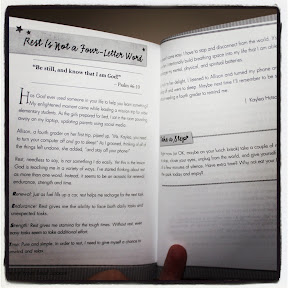 Rest Is Not a Four-Letter Word
"Be still, and know that I am God!"
—Psalm 46:10
Has God ever used someone in your life to help you learn something?
My enlightened moment came while leading a mission trip for some
elementary students. As the girls prepared for bed, I sat in the room pounding
away on my laptop, squashing parents using social media.
Allison, a fourth grader on her first trip, piped up, "Ms. Kaylea, you need
to turn your computer off and go to sleep!" As I groaned, thinking of all of
the things left undone, she added, "and say off your phone!"
Rest, needless to say, is not something I do easily. Yet this is the lesson
God is teaching me in a variety of ways. I've started thinking about rest
as more than one word. Instead, it seems to be an acrostic for renewal,
endurance, strength and time.
Renewal: Just as fuel fills up a car, rest helps me recharge for the next task.
Endurance: Rest gives me the ability to face both daily tasks and
unexpected tasks.
Strength: Rest gives me stamina for the tough times. Without rest, even
easy tasks seem to take additional effort.
Time: Pure and simple, in order to rest, I need to give myself a chance to
I have to stop and disconnect from the world. It's
intentionally build breathing space into my life that I can other
to rental, physical, and spiritual batteries.
delight, I listened to Allison and turned my phone and
went to sleep. Maybe next time I'll remember to be s
a fourth grader to remind me.
Kaylea Hutson
Take a Step*
right now (or OK, maybe on your lunch break) take a couple of m
close your eyes, unplug from the world, and give yourself
minutes of silence. Have extra time? Why not rest your
today and enjoy!